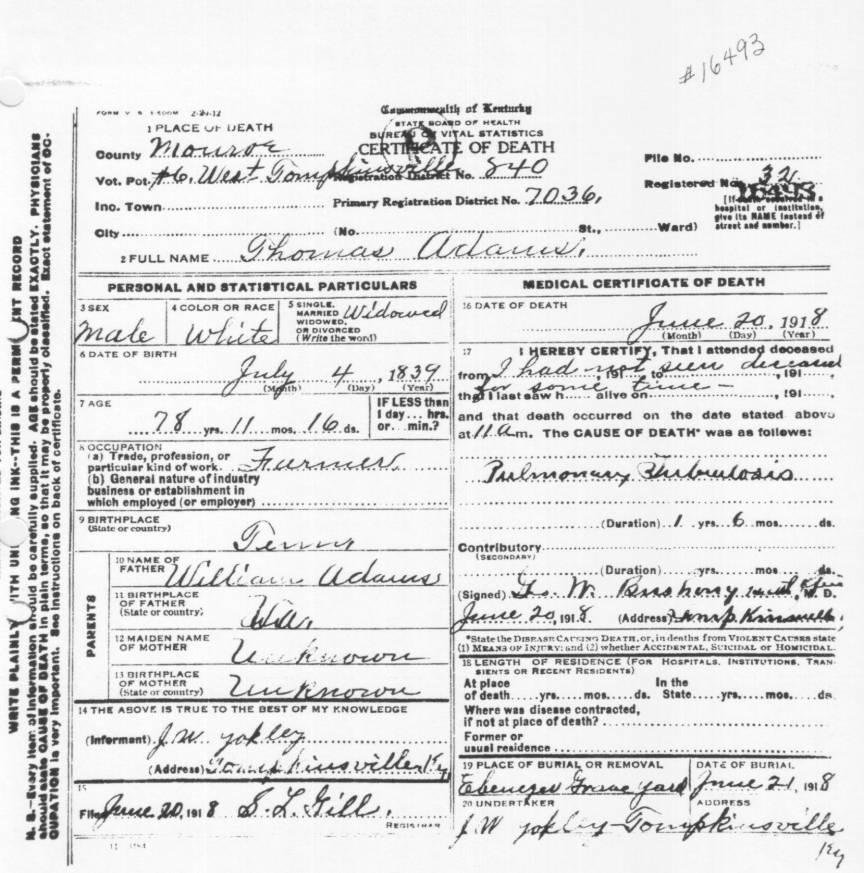 #16493
FORM V. S. 2-20-12
Commonwealth of Kentucky
STATE BOARD OF HEALTH
BUREAU OF VITAL STATISTICS
CERTIFICATE OF DEATH
1 PLACE OF DEATH
County Monroe
Vot. Pct. #6, West Tompkinsville Registration District No. 840
Inc. Town Primary Registration District No. 7036.
City (No. St., Ward)
File No.
Registered No. 32
16493
[If death occurred in a
hospital or institution,
give its NAME instead of
street and number.]
2 FULL NAME Thomas Adams.
PERSONAL AND STATISTICAL PARTICULARS
3 SEX
Male
4 COLOR OR RACE
White
5 SINGLE,
MARRIED Widowed
WIDOWED,
OR DIVORCED
(Write the word)
6 DATE OF BIRTH
July 4, 1839
(Month) (Day) (Year)
7 AGE
78 yrs. 11 mos. 16 ds.
IF LESS than
1 day... hrs.
or... min.?
8 OCCUPATION
(a) Trade, profession, or
particular kind of work. Farmer
(b) General nature of industry
business or establishment in
which employed (or employer)
9 BIRTHPLACE
(State or country)
Tenn
PARENTS
10 NAME OF
FATHER William Adams
11 BIRTHPLACE
OF FATHER
(State or country) Va.
12 MAIDEN NAME
OF MOTHER Unknown
13 BIRTHPLACE
OF MOTHER
(State or country) Unknown
14 THE ABOVE IS TRUE TO THE BEST OF MY KNOWLEDGE
(Informant) J. W. Yokley
(Address) Tompkinsville Ky.
15
Filed June 20, 1918 S. L. Gill.
REGISTRAR
MEDICAL CERTIFICATE OF DEATH
16 DATE OF DEATH
June 20, 1918
(Month) (Day) (Year)
17 I HEREBY CERTIFY, That I attended deceased
from I had not seen deceased, 191 to, 191
for some time -
that I last saw h alive on, 191
and that death occurred on the date stated above
at 11 a m. The CAUSE OF DEATH* was as follows:
Pulmonary Tuberculosis
(Duration) 1 yrs. 6 mos. ds.
Contributory
(SECONDARY)
(Duration) yrs. mos. ds.
(Signed) Geo. W. Bushong M. D.
June 20, 1918 (Address)
*State the DISEASE CAUSING DEATH, or, in deaths from VIOLENT CAUSES state
(1) MEANS OF INJURY; and (2) whether ACCIDENTAL, SUICIDAL or HOMICIDAL.
18 LENGTH OF RESIDENCE (FOR HOSPITALS, INSTITUTIONS, TRAN-
SIENTS OR RECENT RESIDENTS)
At place In the
of death yrs. mos. ds. State yrs. mos. ds.
Where was disease contracted,
if not at place of death?
Former or
usual residence
19 PLACE OF BURIAL OR REMOVAL
Ebenezer Grave yard
DATE OF BURIAL
June 21, 1918
20 UNDERTAKER
J. W. Yokley
ADDRESS
Tompkinsville
Ky
WRITE PLAINLY WITH UNFADING INK--THIS IS A PERMANENT RECORD
N. B.--Every item of information should be carefully supplied. AGE should be stated EXACTLY. PHYSICIANS
should state CAUSE OF DEATH in plain terms, so that it may be properly classified. Exact statement of OC-
CUPATION is very important. See instructions on back of certificate.